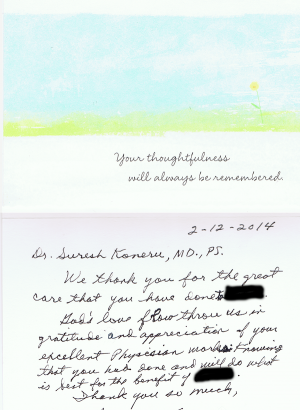 Your thoughtfulness
will always be remembered.
2-12-2014
Dr. Suresh Koneru, MD., PS.
We thank you for the great
care that you have done
God's love flow throu us in
gratitude and appreciation of your
excellent Physician work. Knowing
that you have done and will do what
is best for the benefit of
Thank you so much,